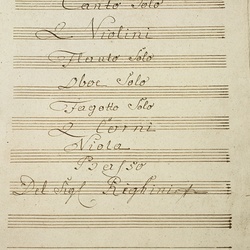 Canto Solo
2 Violini
Flauto Solo
Oboe Solo
Fagotto Solo
2 Corni
Viola
Basso
Del Sigl Righini